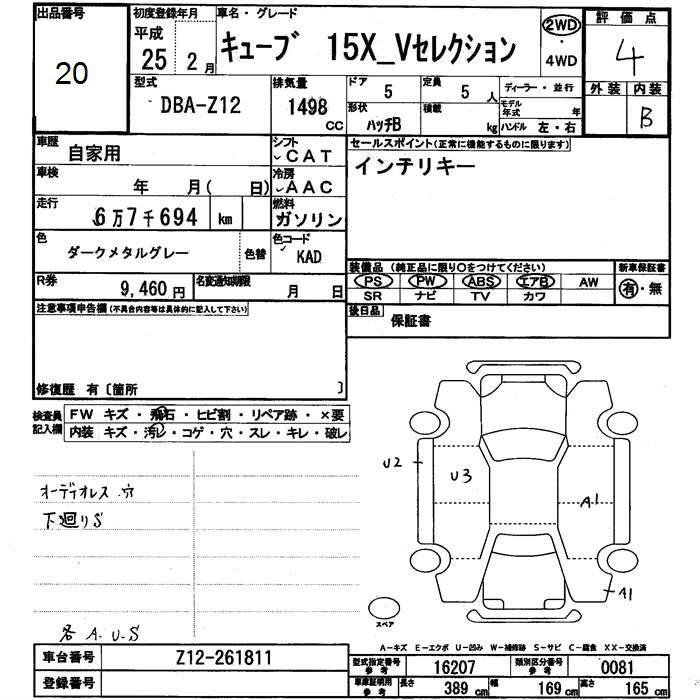 出品番号
20
初度登録年月
平成
25 2 月
車名・グレード
キューブ 15X_Vセレクション
2WD
・
4WD
評価点
4
外装 内装
B
型式
DBA-Z12
排気量
1498
CC
ドア
5
定員
5 人
ディーラー・並行
形状
ハッチB
積載
kg
モデル年式 年
ハンドル 左・右
車歴
自家用
シフト
CAT
セールスポイント(正常に機能するものに限ります)
インテリキー
車検
年 月( 日)
冷房
AAC
走行
6万7千694 km
燃料
ガソリン
色
ダークメタルグレー
色替
色コード
KAD
装備品 (純正品に限り〇をつけてください)
新車保証書
PS PW ABS エアB AW
有・無
SR ナビ TV カワ
R券
9,460 円
名変通知期限
月 日
後日品
保証書
注意事項申告欄(不具合内容等は具体的に記入して下さい)
修復歴 有〔箇所 〕
検査員記入欄
FW キズ・飛石・ヒビ割・リペア跡・×要
内装 キズ・汚レ・コゲ・穴・スレ・キレ・破レ
オーディオレス 穴
下廻りS
各 A.U.S
U2
U3
A1
A1
スペア
A-キズ E-エクボ U-凹み W-補修跡 S-サビ C-腐食 XX-交換済
車台番号
Z12-261811
登録番号
型式指定番号
参考
16207
類別区分番号
参考
0081
車庫証明用
参考
長さ
389 cm
幅
169 cm
高さ
165 cm